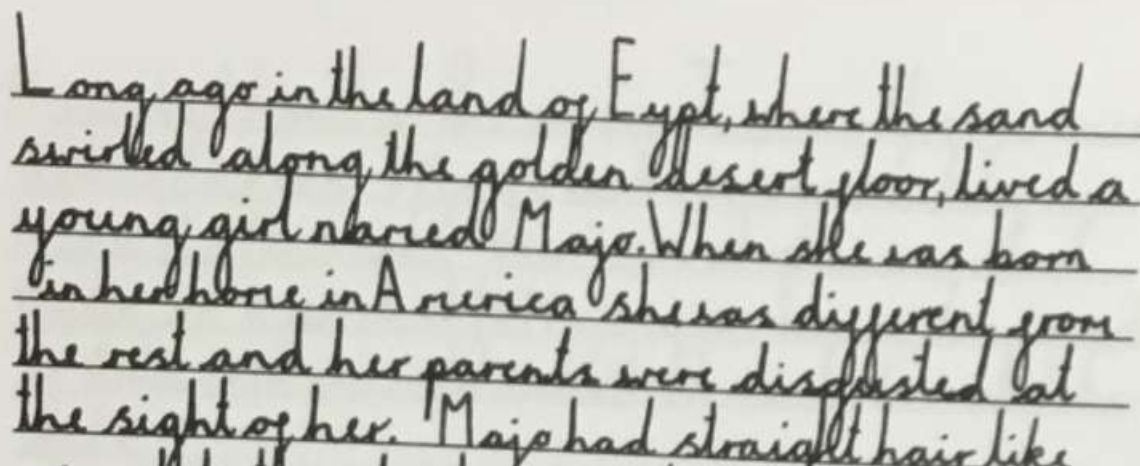 Long ago in the land of Eypt, where the sand
swirled along the golden desert floor, lived a
young girl named Majo. When she was born
in her home in America she was different from
the rest and her parents were disgusted at
the sight of her. Majo had straight hair like